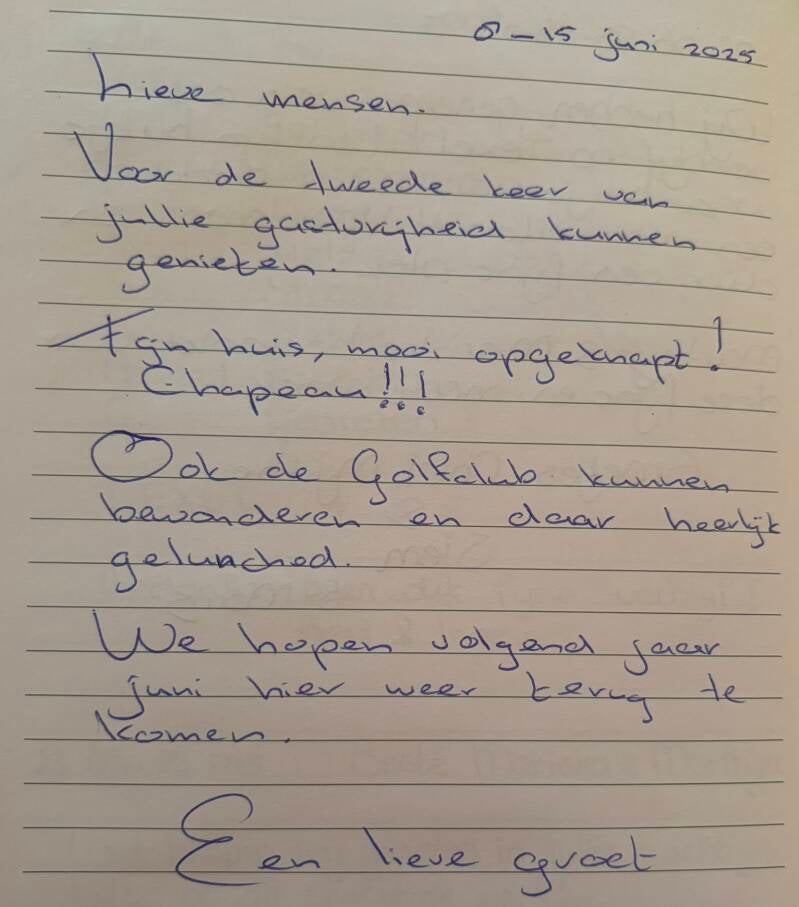 8-15 juni 2025
Lieve mensen.
Voor de tweede keer van
jullie gastvrijheid kunnen
genieten.
Fijn huis, mooi opgeknapt!
Chapeau!!!
Ook de Golfclub kunnen
bewonderen en daar heerlijk
gelunched.
We hopen volgend jaar
juni hier weer terug te
komen.
Een lieve groet